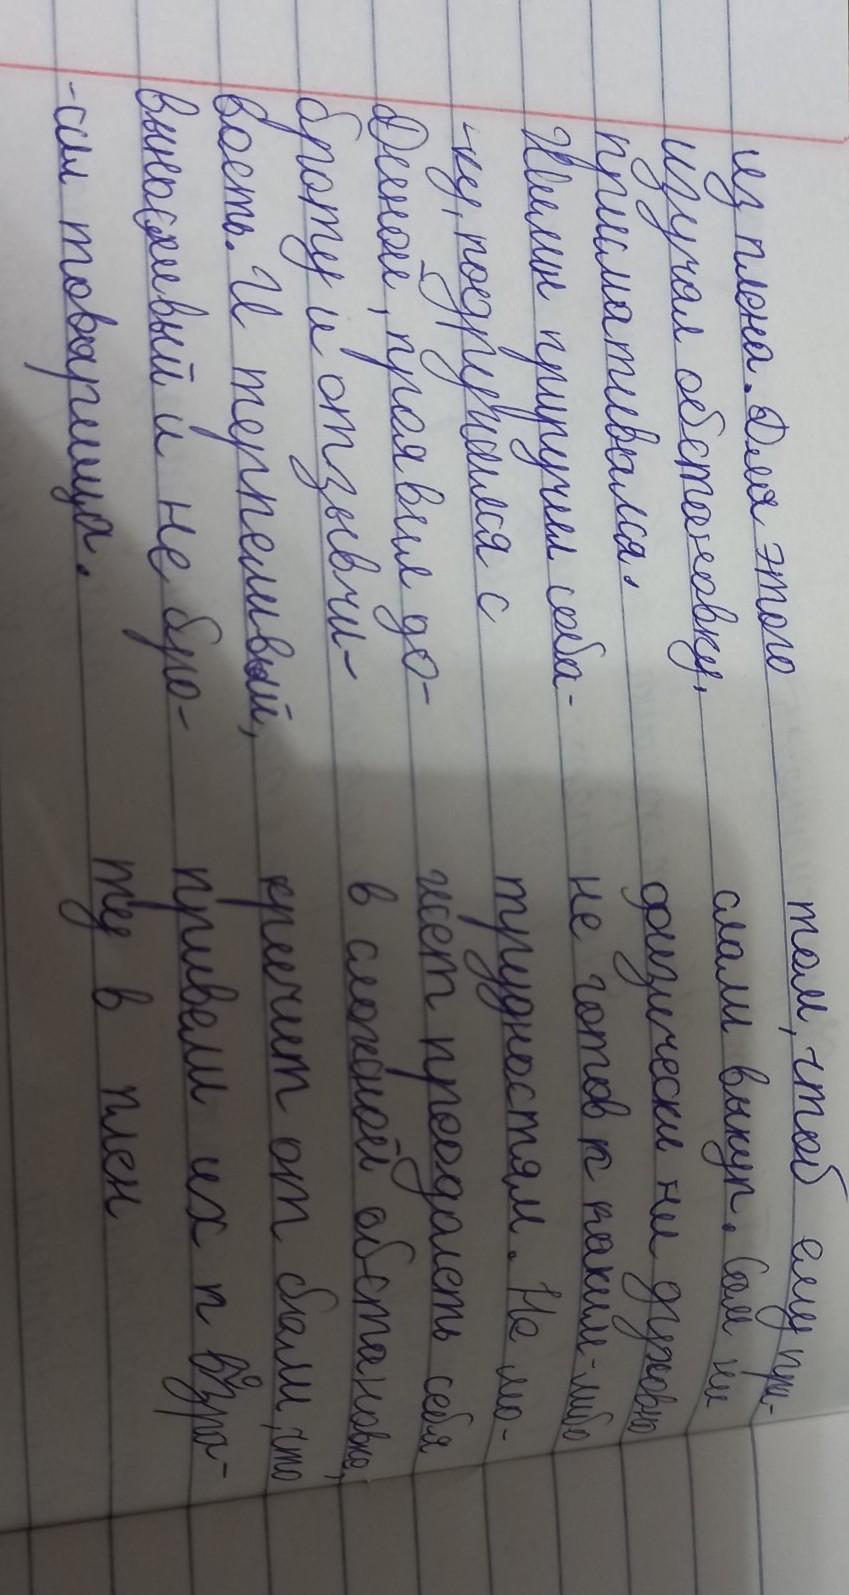 из плена. Для этого
изучал обстановку,
присматривался.
Жилин приручил соба-
-ку, подружился с
Диной, праявил до-
броту и отзывчи-
вость. И терпеливый,
выносливый и не бро-
-сил товарища.
том, чтоб ему при-
слали выкуп. Сам ни
физически ни духовно
не готов к каким-либо
трудностям. Не мо-
жет преодалеть себя
в сложной обстановке,
кричит от боли, что
привели их к возра-
ту в плен